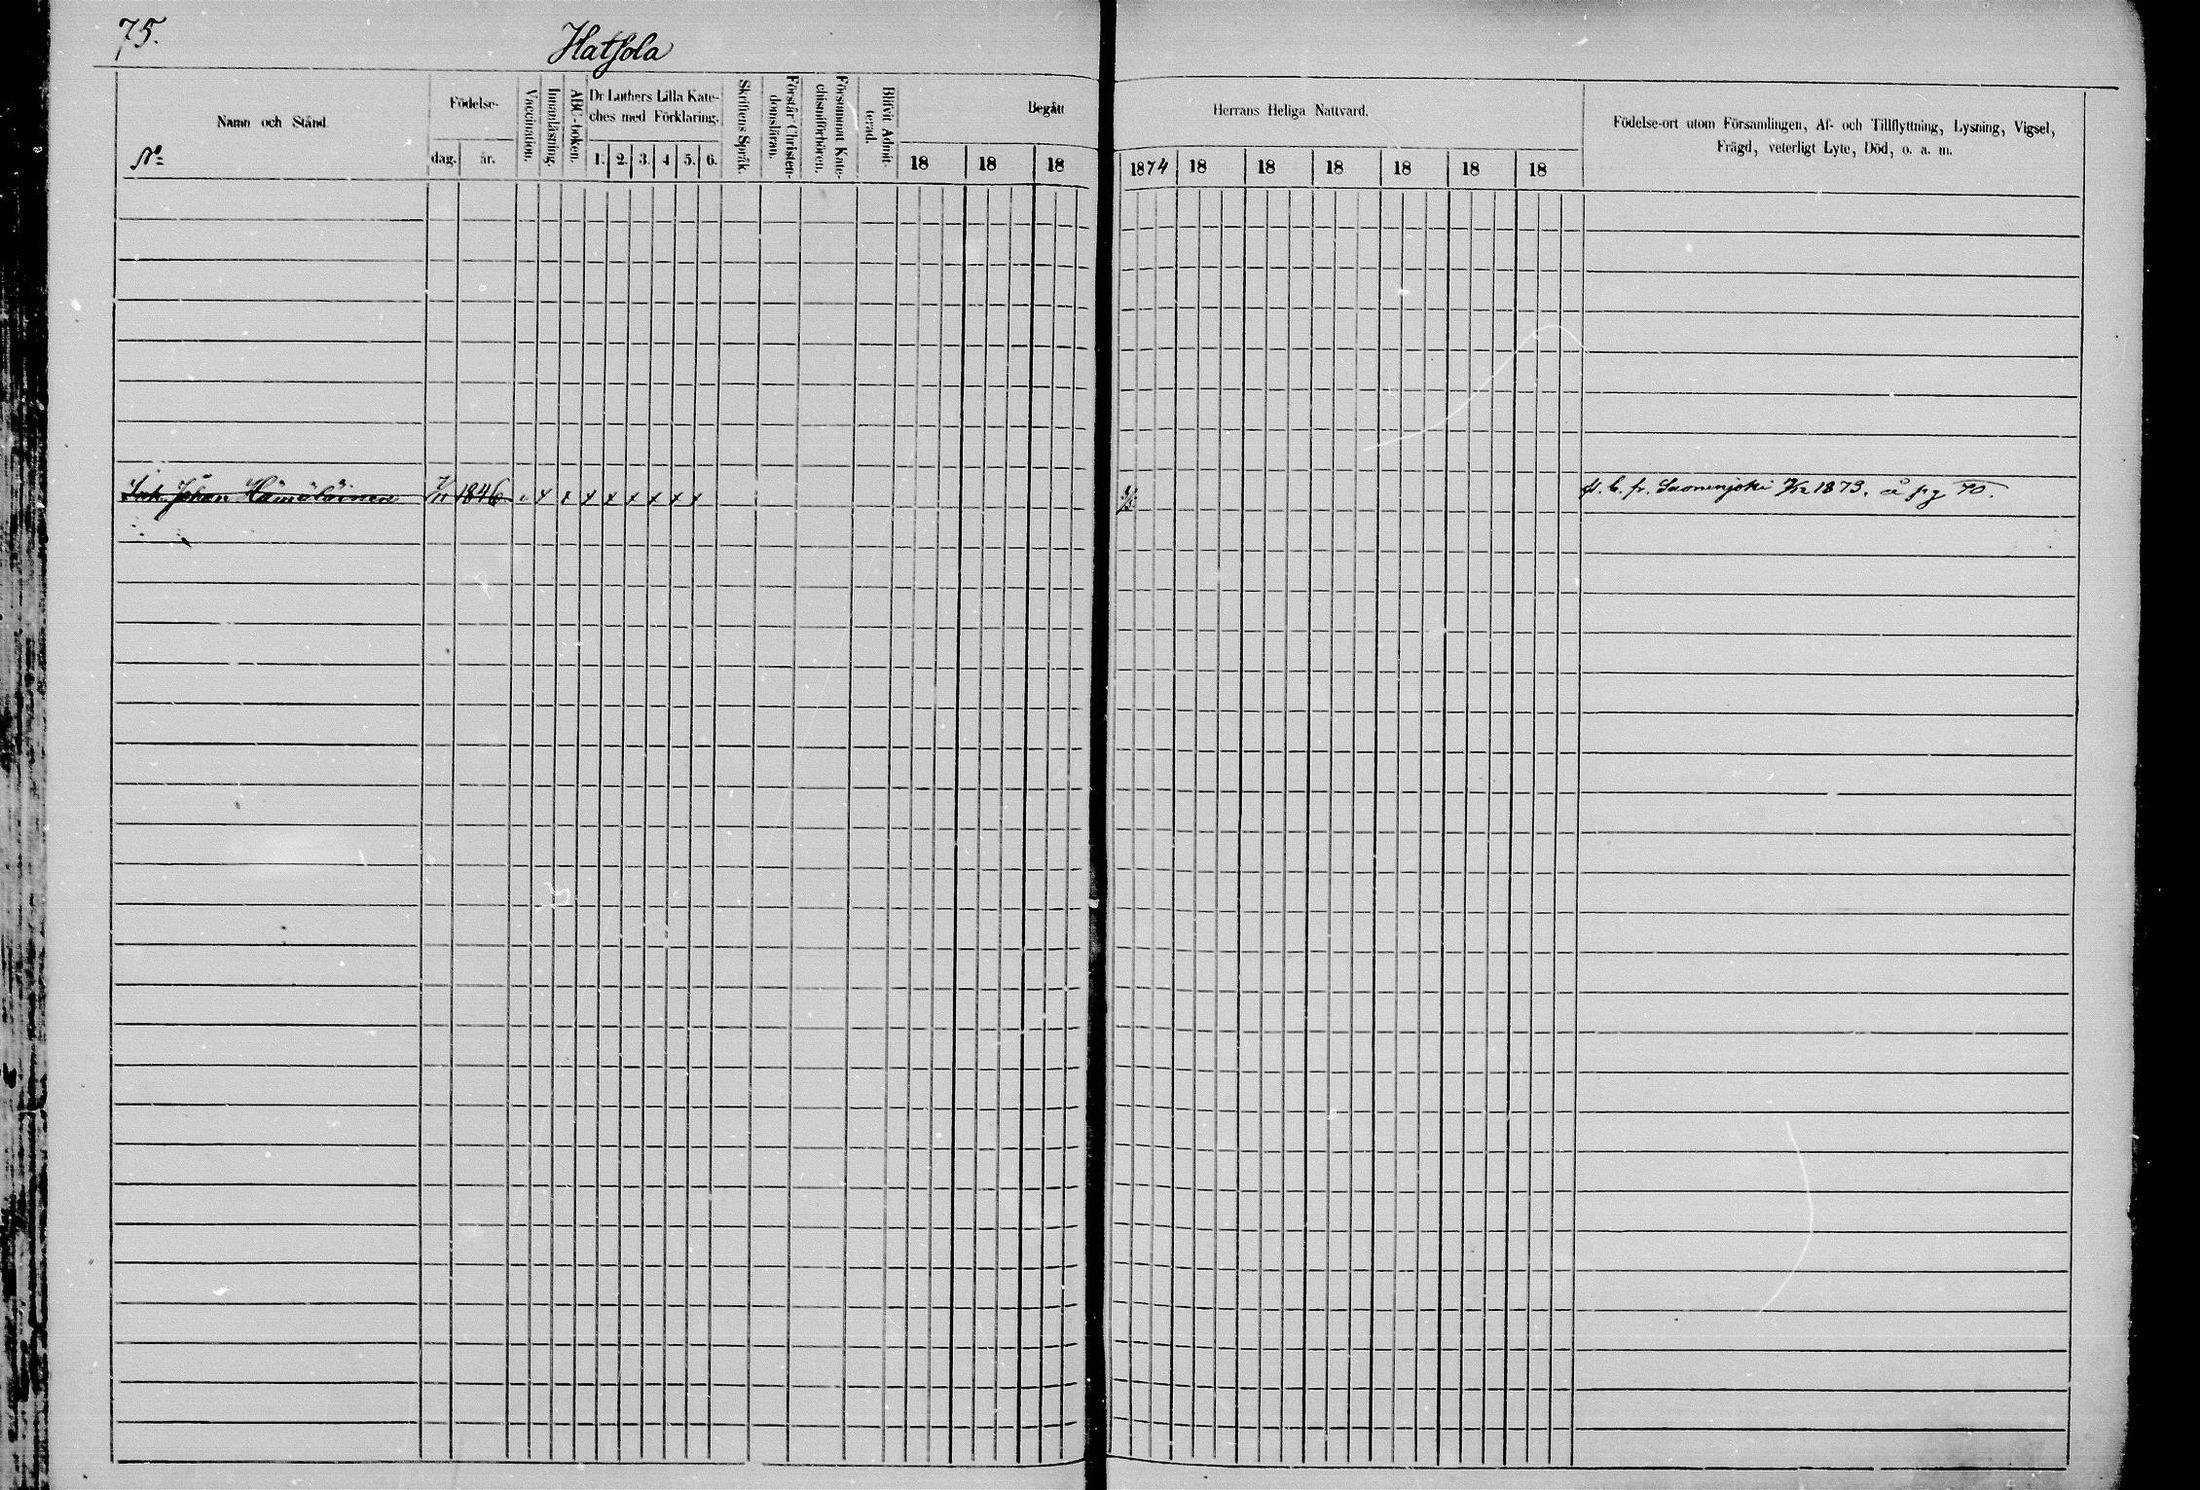 75.
Hatsola
Namn och Stånd
No
Födelse-
dag.
år.
Vaccination.
Innanläsning.
ABC-boken.
Dr Luthers Lilla Kate-
ches med Förklaring.
1. 2. 3. 4 5. 6.
Skriftens Språk.
Förstår Christen-
domsläran.
Försummat Kate-
chismiförhören.
Blifvit Admit-
terad.
Begått
18 18 18
Herrans Heliga Nattvard.
1874 18 18 18 18 18 18
Födelse-ort utom Församlingen, Af- och Tillflyttning, Lysning, Vigsel,
Frägd, veterligt Lyte, Död, o. a. m.
Inh. Johan Hämäläinen 1846. x x x x x x x x
fr. Suonenjoki 1873. å pg 70.